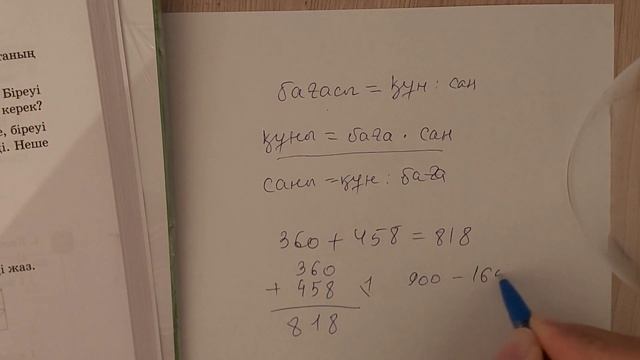 таның
Біреуі
керек?
е, біреуі
ді. Неше
ді жаз.
бағасы = құн : сан
құны = баға · сан
саны = құн : баға
360 + 458 = 818
360
+ 458
818
900 - 16